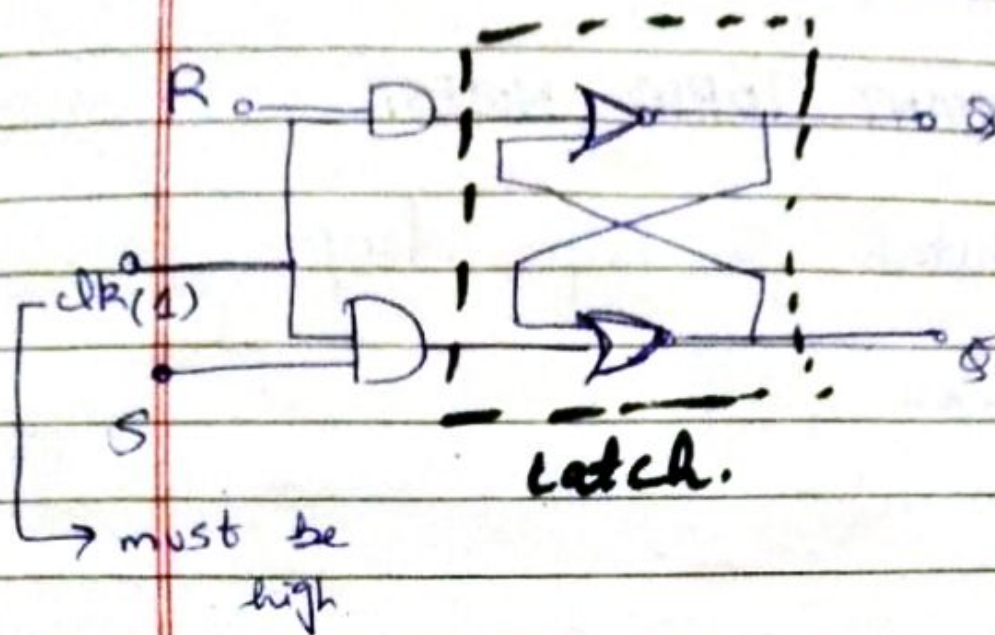 R
Q
clk(1)
S
Q
Latch.
must be
high